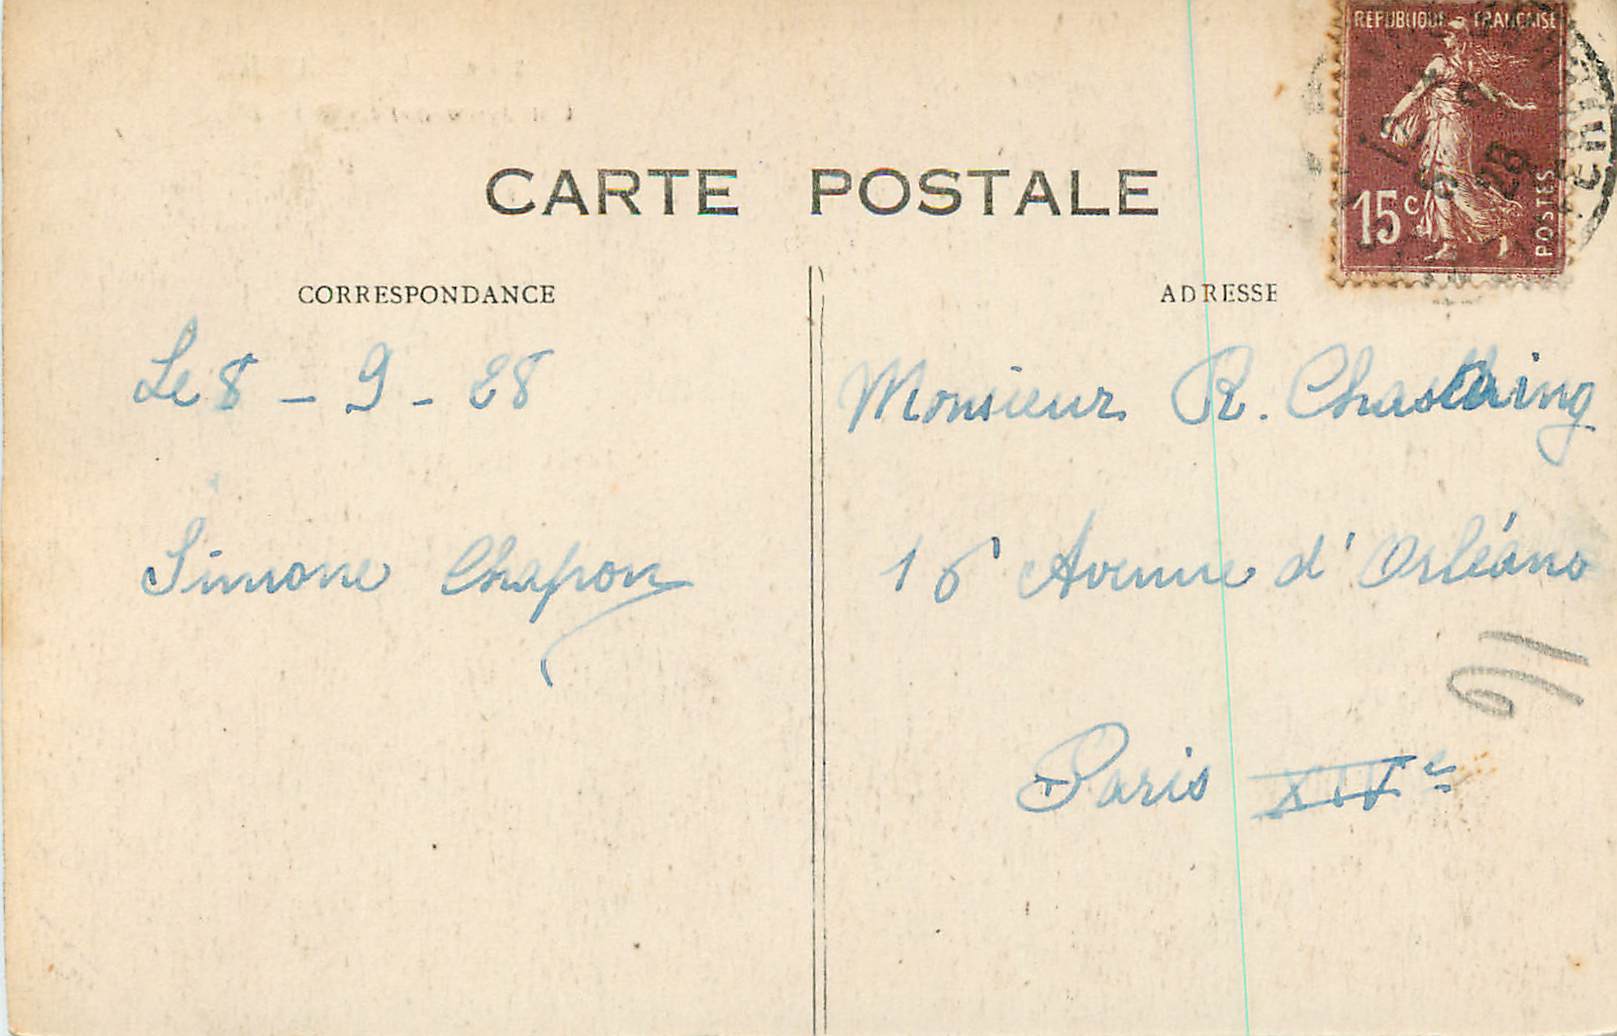 RÉPUBLIQUE FRANÇAISE
15c
POSTES
28
CARTE POSTALE
CORRESPONDANCE
Le 8 - 9 - 28
Simone Chapon
ADRESSE
Monsieur R. Chastaing
16 Avenue d'Orléans
Paris XIVe
91